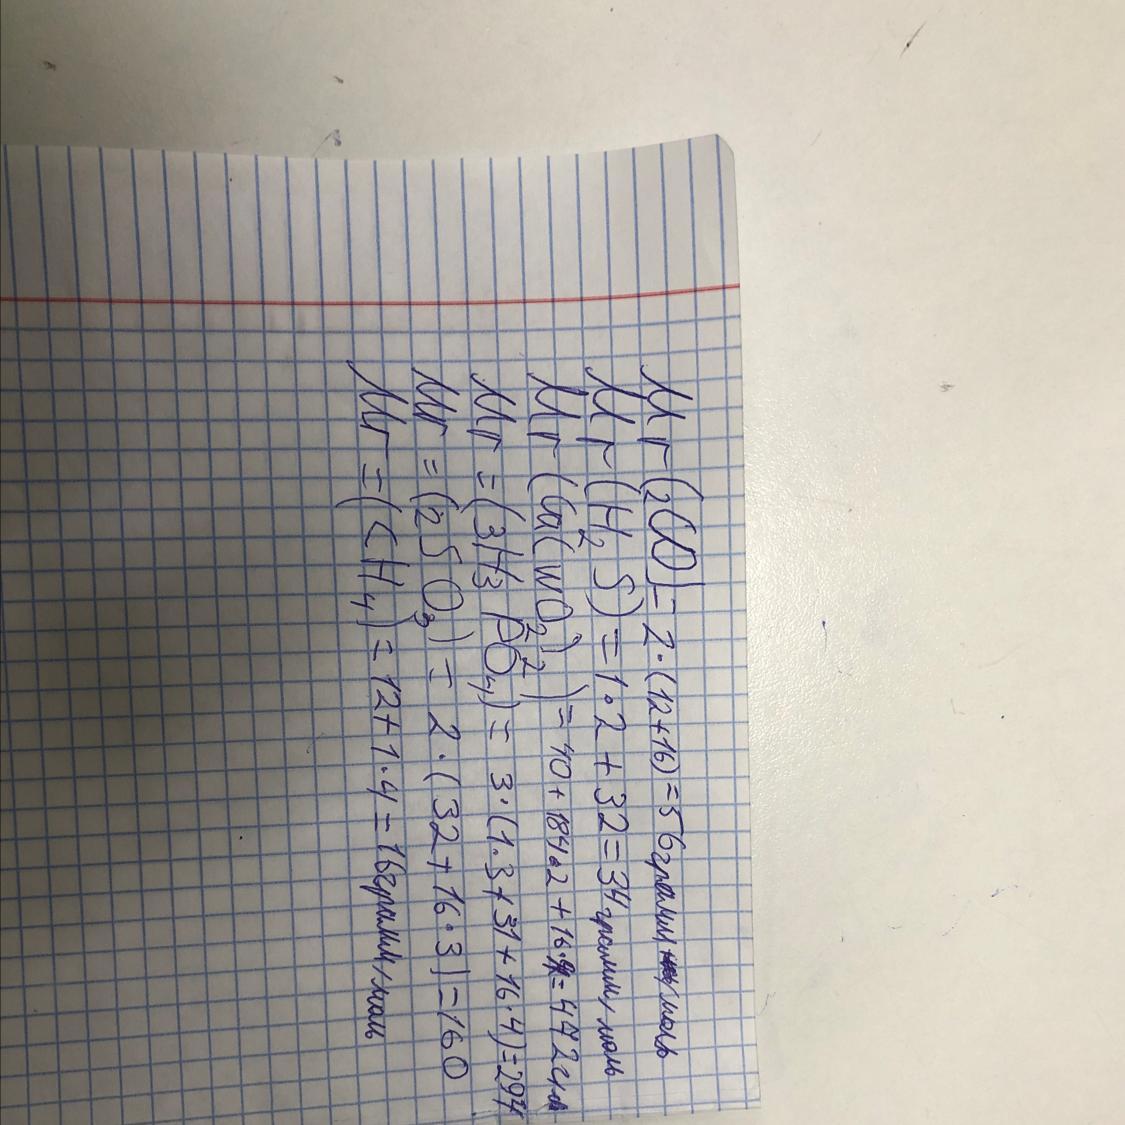 Mr(2CO)=2·(12+16)=56грамм/моль
Mr(H2S)=1·2+32=34грамм/моль
Mr(Ca(WO2)2)=40+184·2+16·4=472г/м
Mr=(3H3PO4)=3·(1·3+31+16·4)=294
Mr=(2SO3)=2·(32+16·3)=160
Mr=(CH4)=12+1·4=16грамм/моль